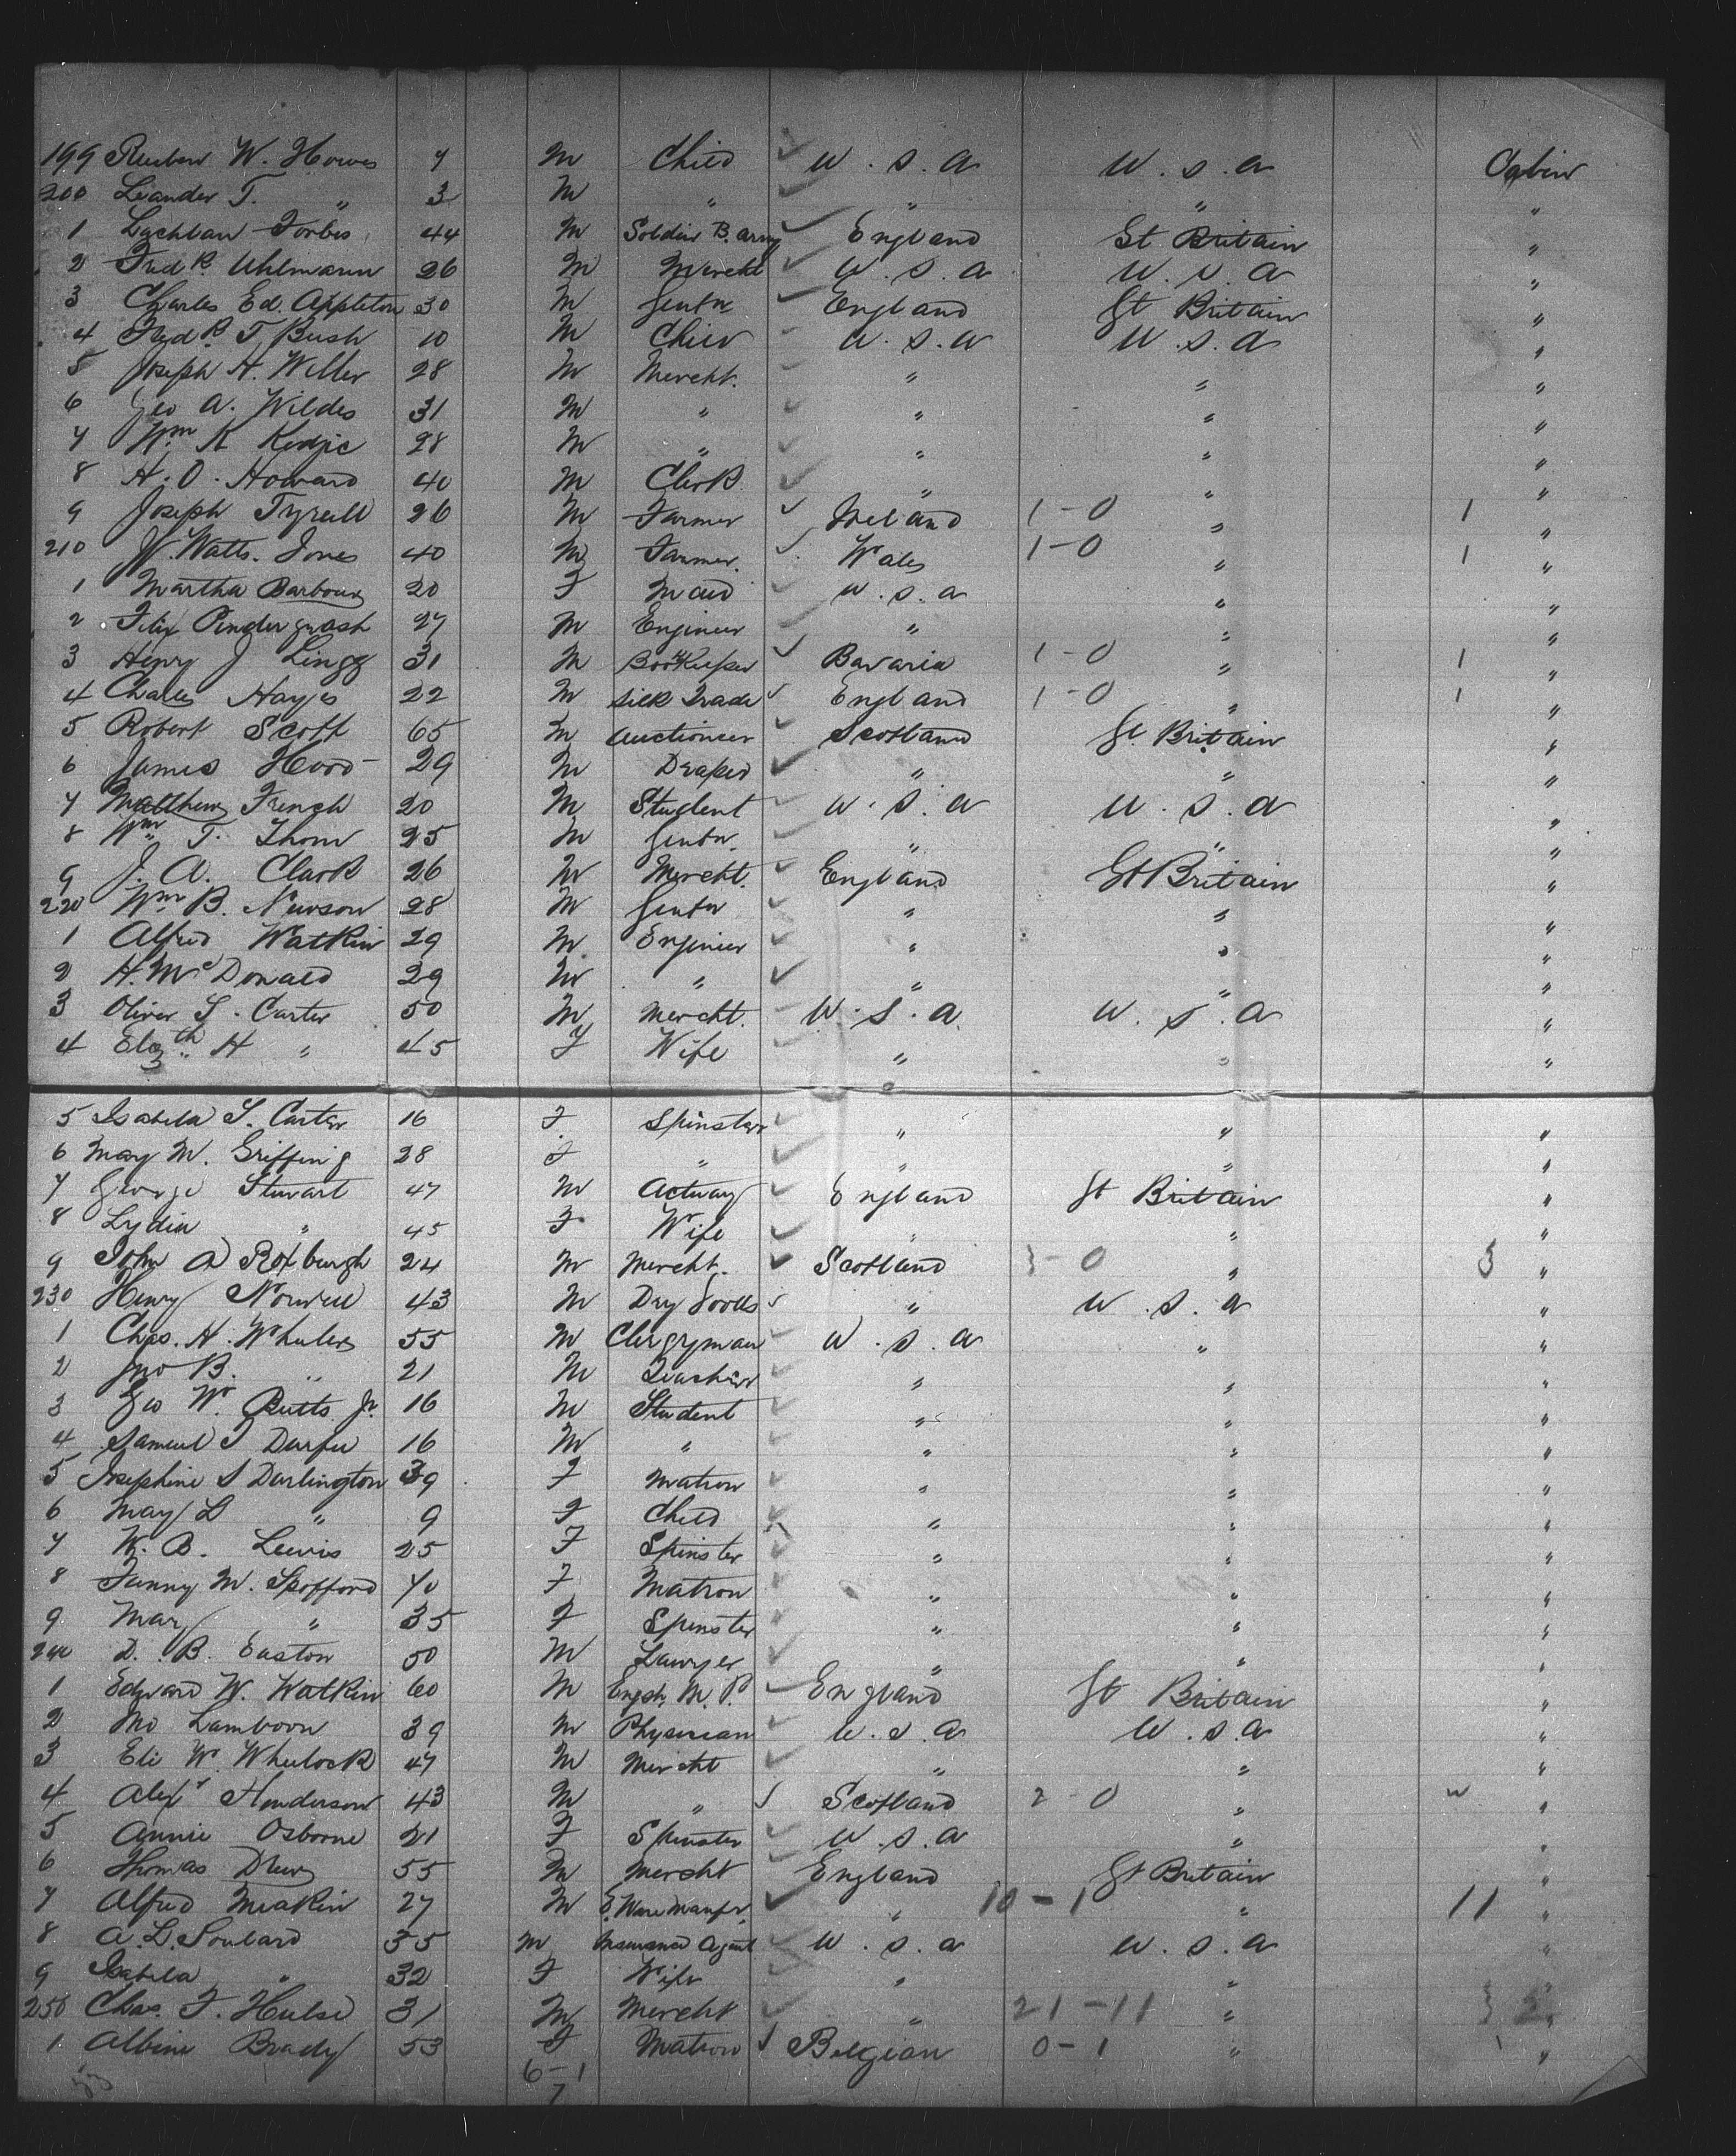 199 Reuben W. Howes 7 M Child U.S.A U.S.A Cabin
200 Leander T. " 3 M " " " "
1 Lachlan Forbes 44 M Soldier B. army England Gt Britain "
2 Fred K. Uhlmann 26 M Mercht U.S.A U.S.A "
3 Charles Ed. Appleton 30 M Gentn England Gt Britain "
4 Fred K. T. Bush 10 M Child U.S.A U.S.A "
5 Joseph H. Weller 28 M Mercht. " " "
6 Geo A. Wildes 31 M " " " "
7 Wm K Kedjie 28 M " " " "
8 H. O. Howard 40 M Clerk " " "
9 Joseph Tyrell 26 M Farmer Ireland 1-0 " 1 "
210 W. Watts. Jones 40 M Farmer. Wales 1-0 " 1 "
1 Martha Barbour 20 F Maid U.S.A " "
2 Felix Pendergrast 27 M Engineer " " "
3 Henry J Lingg 31 M BookKeeper Bavaria 1-0 " 1 "
4 Charles Hayes 22 M Silk Trade England 1-0 " 1 "
5 Robert Scott 65 M Auctioneer Scotland Gt. Britain "
6 James Hood 29 M Draper " " "
7 Matthew French 20 M Student U.S.A U.S.A "
8 Wm T. Thom 25 M Gentn. " " "
9 J. A. Clark 26 M Mercht. England Gt Britain "
220 Wm B. Newson 28 M Gentn " " "
1 Alfred Watkin 29 M Engineer " " "
2 H. McDonald 29 M " " " "
3 Oliver S. Carter 50 M Mercht. U.S.A. U.S.A "
4 Elizth H " 45 F Wife " " "
5 Isabella S. Carter 16 F Spinster " " "
6 May M. Griffing 28 F " " " "
7 George Stewart 47 M Actuary England Gt Britain "
8 Lydia " 45 F Wife " " "
9 John A Roxburgh 24 M Mercht. Scotland 3-0 " 3 "
230 Henry Norwell 43 M Dry Goods " U.S.A "
1 Chas. H. Wheeler 55 M Clergyman U.S.A " "
2 Jno B. " 21 M Teacher " " "
3 Geo W. Butts Jr. 16 M Student " " "
4 Samuel J Durfee 16 M " " " "
5 Josephine S Darlington 39 F Matron " " "
6 May L " 9 F Child " " "
7 W. B. Lewis 25 F Spinster " " "
8 Fanny M. Spofford 70 F Matron " " "
9 Mary " 35 F Spinster " " "
240 D. B. Easton 50 M Lawyer " " "
1 Edward W. Watkin 60 M Engsh M.P. England Gt Britain "
2 Jno Lamborn 39 M Physician U.S.A U.S.A "
3 Eli W. Wheelock 47 M Mercht " " "
4 Alexr Henderson 43 M " Scotland 2-0 " "
5 Annie Osborne 21 F Spinster U.S.A " "
6 Thomas Drew 55 M Mercht England Gt Britain "
7 Alfred Meakin 27 M E. Ware Manfr. " 10-1 " 11 "
8 A. L. Soulard 35 M Insurance Agent U.S.A U.S.A "
9 Isabela " 32 F Wife " " "
250 Chas. F. Hulse 31 M Mercht " 21-11 " "
1 Albine Brady 53 F Matron Belgian 0-1 " "
6-1
7